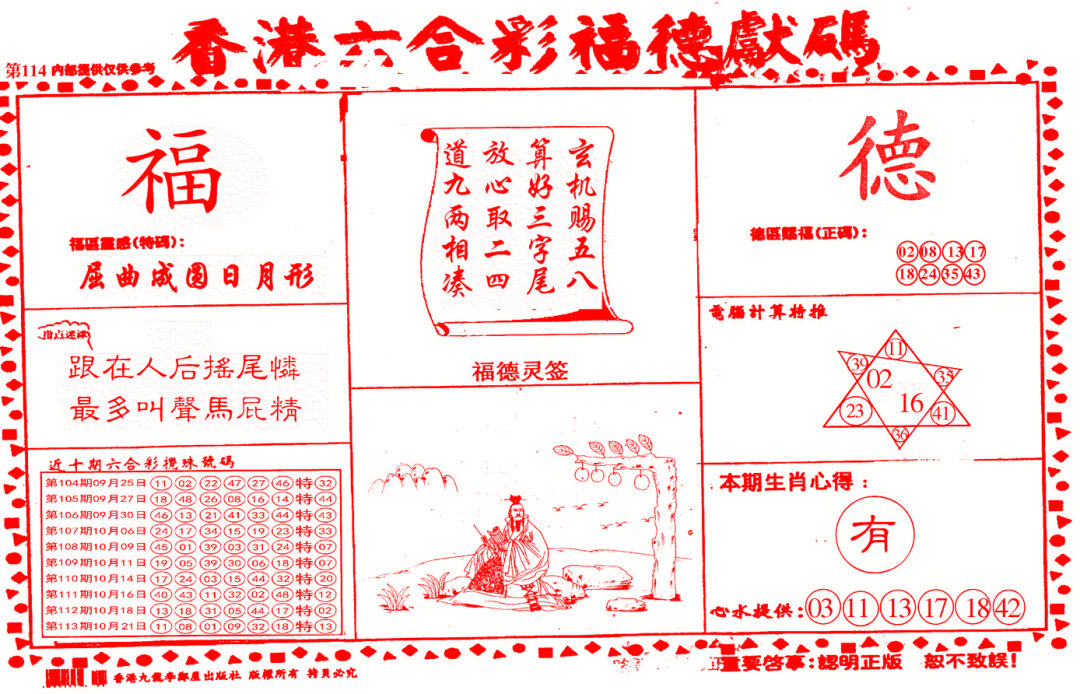 香港六合彩福德獻碼
第114 内部提供仅供参考
福
福區靈感(特碼):
屈曲成圆日月形
指点迷津
跟在人后搖尾憐
最多叫聲馬屁精
近十期六合彩攪珠號碼
第104期09月25日 11 02 22 47 27 46 特 32
第105期09月27日 18 48 26 08 16 14 特 44
第106期09月30日 46 13 21 41 33 44 特 43
第107期10月06日 24 17 34 15 19 23 特 33
第108期10月09日 45 01 39 03 31 24 特 07
第109期10月11日 19 05 39 30 06 18 特 07
第110期10月14日 17 24 03 15 44 32 特 20
第111期10月16日 40 43 11 32 02 48 特 12
第112期10月18日 13 18 31 05 44 17 特 02
第113期10月21日 11 08 01 09 32 18 特 13
玄机赐五八
算好三字尾
放心取二四
道九两相凑
福德灵签
德
德區賜福(正碼):
02 08 13 17
18 24 35 43
電腦計算特推
11
39
35
02
16
23
41
36
本期生肖心得:
有
心水提供: 03 11 13 17 18 42
香港九龍李鄭屋出版社 版權所有 拷貝必究
重要啓事:認明正版 恕不致誤!